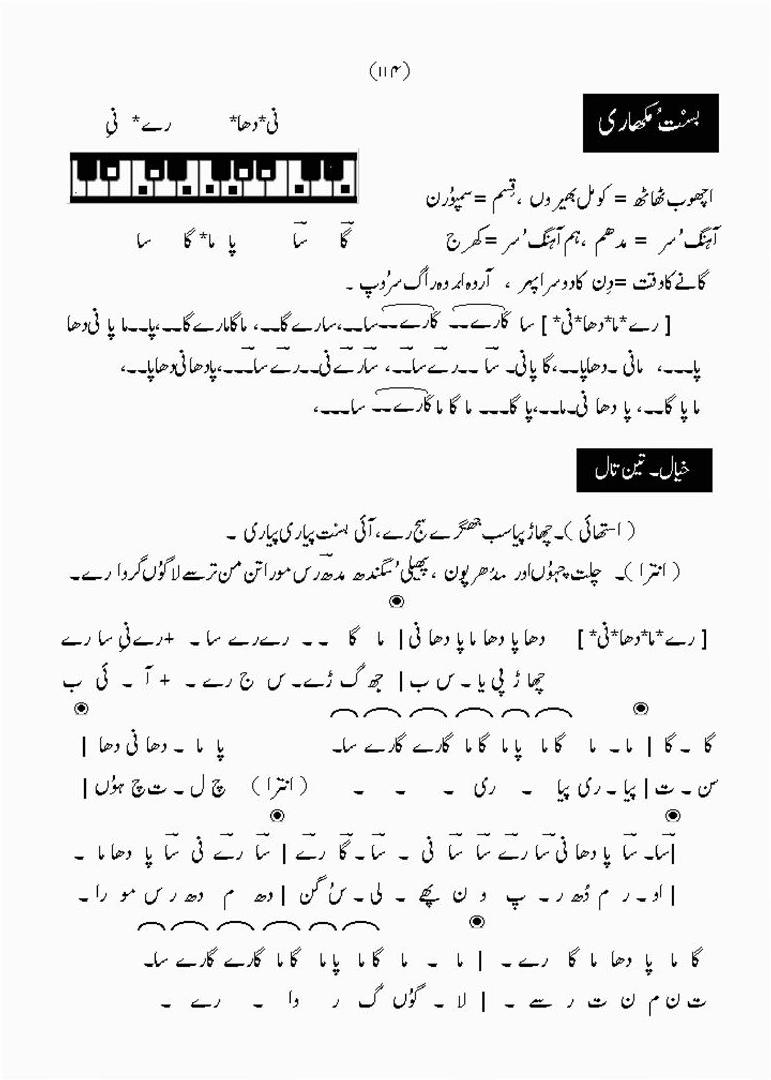 (۱۱۴)
بسنت مکھاری
نی*دھا* رے* نیِ
اچھوب ٹھاٹھ = کومل بھیروں ، قِسم = سمپوُرن
آہنگ سُر = مدھم ، ہم آہنگ سُر = کھرج
گا سا پا ما* گا سا
گانے کا وقت = دِن کا دوسرا پہر ، آروہ امروہ راگ سرُوپ ۔
[ رے*ما*دھا*نی* ] سا گارے۔۔ گارے۔۔سا۔۔،سارے گا۔۔، ماگامارے گا۔۔،پا۔۔ما پا نی دھا
پا۔۔۔، مانی ۔دھاپا۔۔،گا پانی۔ سا ۔۔رے سا۔۔، سارے نی۔۔رے سا۔۔۔،پادھانی دھاپا۔۔،
ما پا گا۔۔، پا دھا نی۔ما۔۔،پا گا۔۔۔ ما گا ما گارے۔۔ سا۔۔۔،
خیال۔ تین تال
( استھائی )۔چھاڑ پیاسب جھگرے سج رے، آئی بسنت پیاری پیاری ۔
( انترا )۔ چلت چہوُں اور مدُھر پون ، پھیلی سُگندھ مدھ رس مورا تن من ترسے لاگوُں گروا رے۔
[ رے*ما*دھا*نی* ] دھا پا دھا ما پا دھا نی | ما گا ۔۔ رے رے سا ۔ +رے نیِ سا رے
چھا ڑ پی یا ۔ س ب | جھ گ ڑے۔ س ج رے ۔ + آ ۔ ئی ب
گا ۔ گا | ما۔ ما گا ما پا ما گا ما گارے گارے سا۔ پا ما ۔ دھا نی دھا |
سن ۔ ت | پیا ۔ ری پیا ۔ ری ۔ ۔ ۔ ( انترا ) چ ل ۔ ت چ ہوُں |
|سا۔ سا پا دھا نی سا رے سا سا نی ۔ سا ۔ گا رے | سا رے نی سا پا دھا ما ۔
| او۔ ر م دُھ ر ۔ پ و ن پھے ۔ لی ۔ سُ گن | دھ م دھ ر س مو را ۔
گا ما پا دھا ما گا رے ۔ | ما ۔ ما گا ما پا ما گا ما گارے گارے سا۔
ت ن م ن ت ر سے ۔ | لا ۔ گوُں گ ر وا ۔ رے ۔